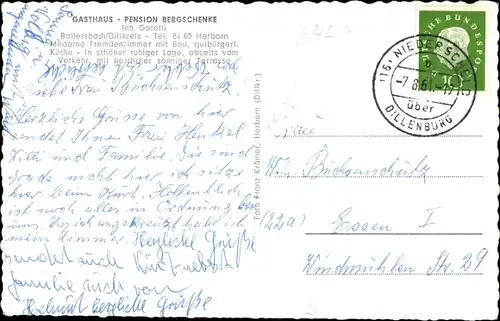 GASTHAUS - PENSION BERGSCHENKE
Inh. Garotti
Ballersbach/Dillkreis - Tel. 84 60 Herborn
Moderne Fremdenzimmer mit Bad, gutbürgerl.
Küche - In schöner ruhiger Lage, abseits vom
Verkehr, mit herrlicher sonniger Terrasse
Liebe Frau Buchsenschütz
Herzliche Grüsse von hier
sendet Ihnen Frau Henkel
Willi und Familie. Sie sind
grade nicht hier ich sitze
hier beim Kurt, Hoffentlich
ist noch alles in Ordnung bei
uns.
mein Zimmer. Herzliche Grüße
sendet auch Kurt nebst
Familie auch von
Helmut herzliche Grüße
Foto Franz Krämer, Herborn (Dillkr.)
DEUTSCHE BUNDESPOST
10
(16) NIEDERSCHELD
b
-7.8.61.-17
über
DILLENBURG
Familie
Wilh. Büchsenschütz
(22a) Essen I
Windmühlen Str. 29